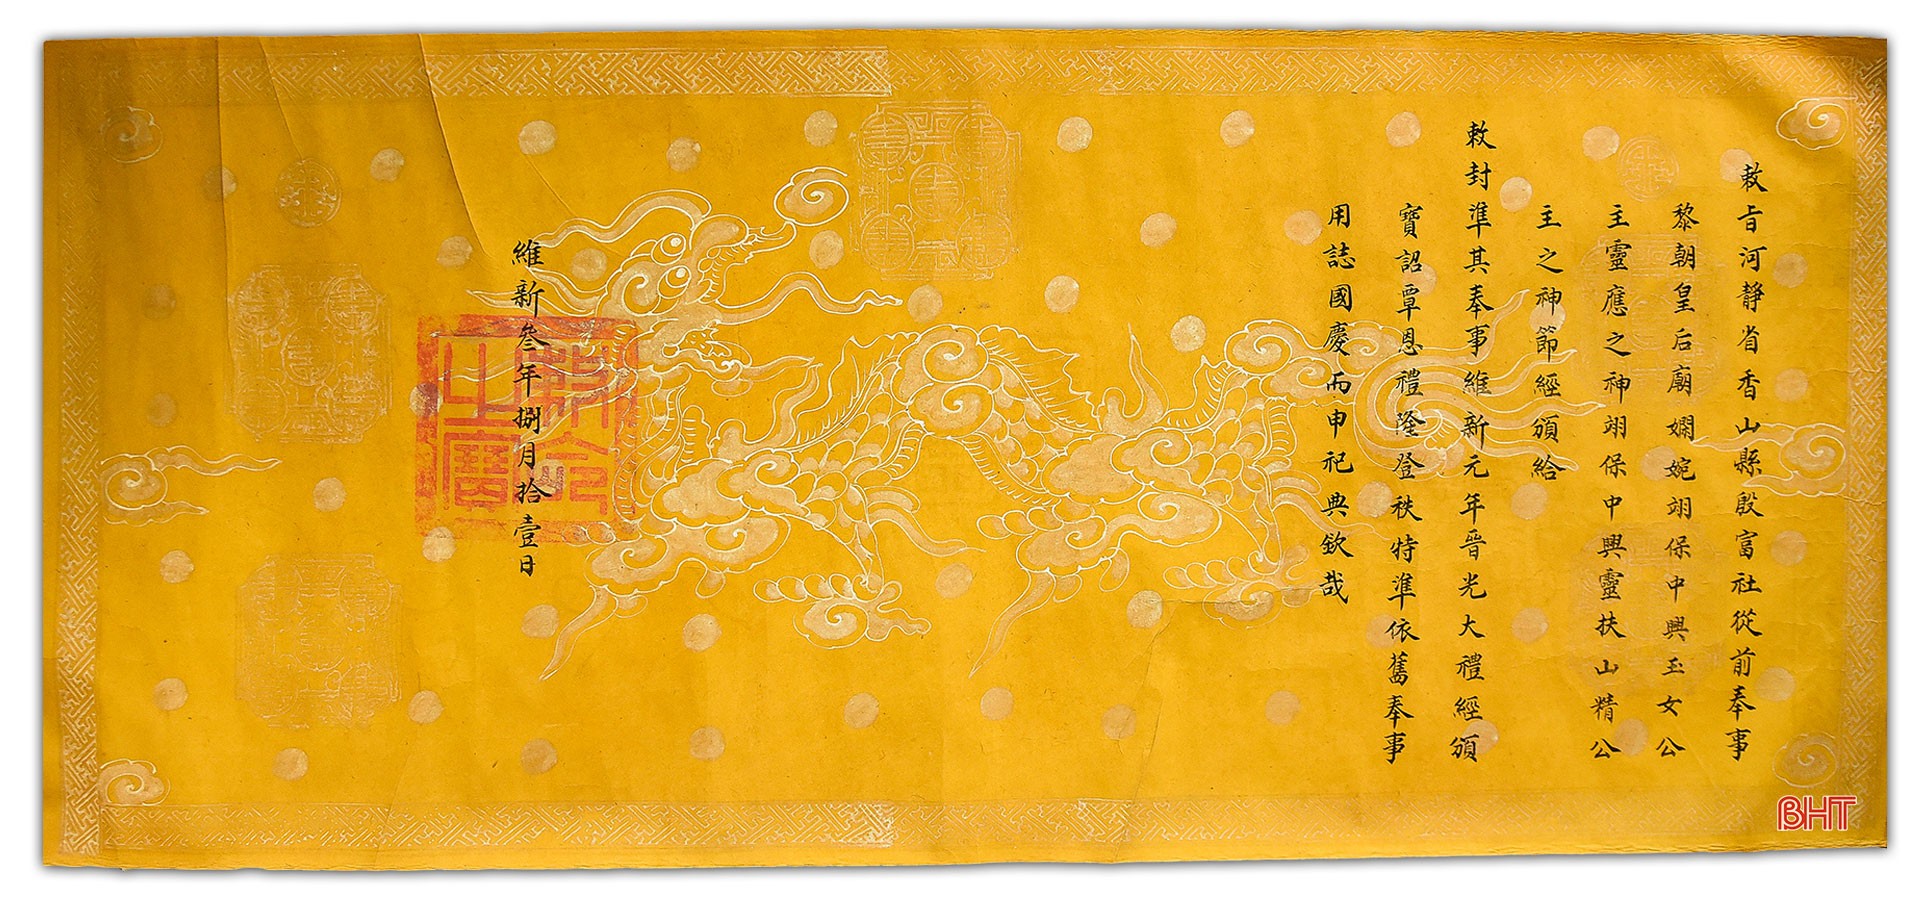 敕旨河靜省香山縣殷富社從前奉事
黎朝皇后廟嫻婉翊保中興玉女公
主靈應之神翊保中興靈扶山精公
主之神節經頒給
敕封準其奉事維新元年晉光大禮經頒
寶詔覃恩禮隆登秩特準依舊奉事
用誌國慶而申祀典欽哉
維新叁年捌月拾壹日
敕命之寶
BHT